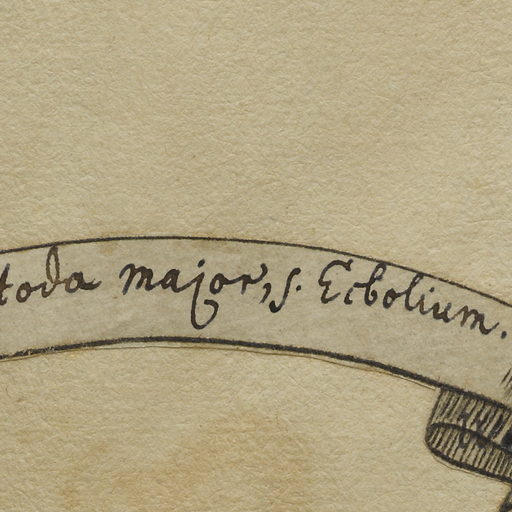 toda major, s. Ecbolium.